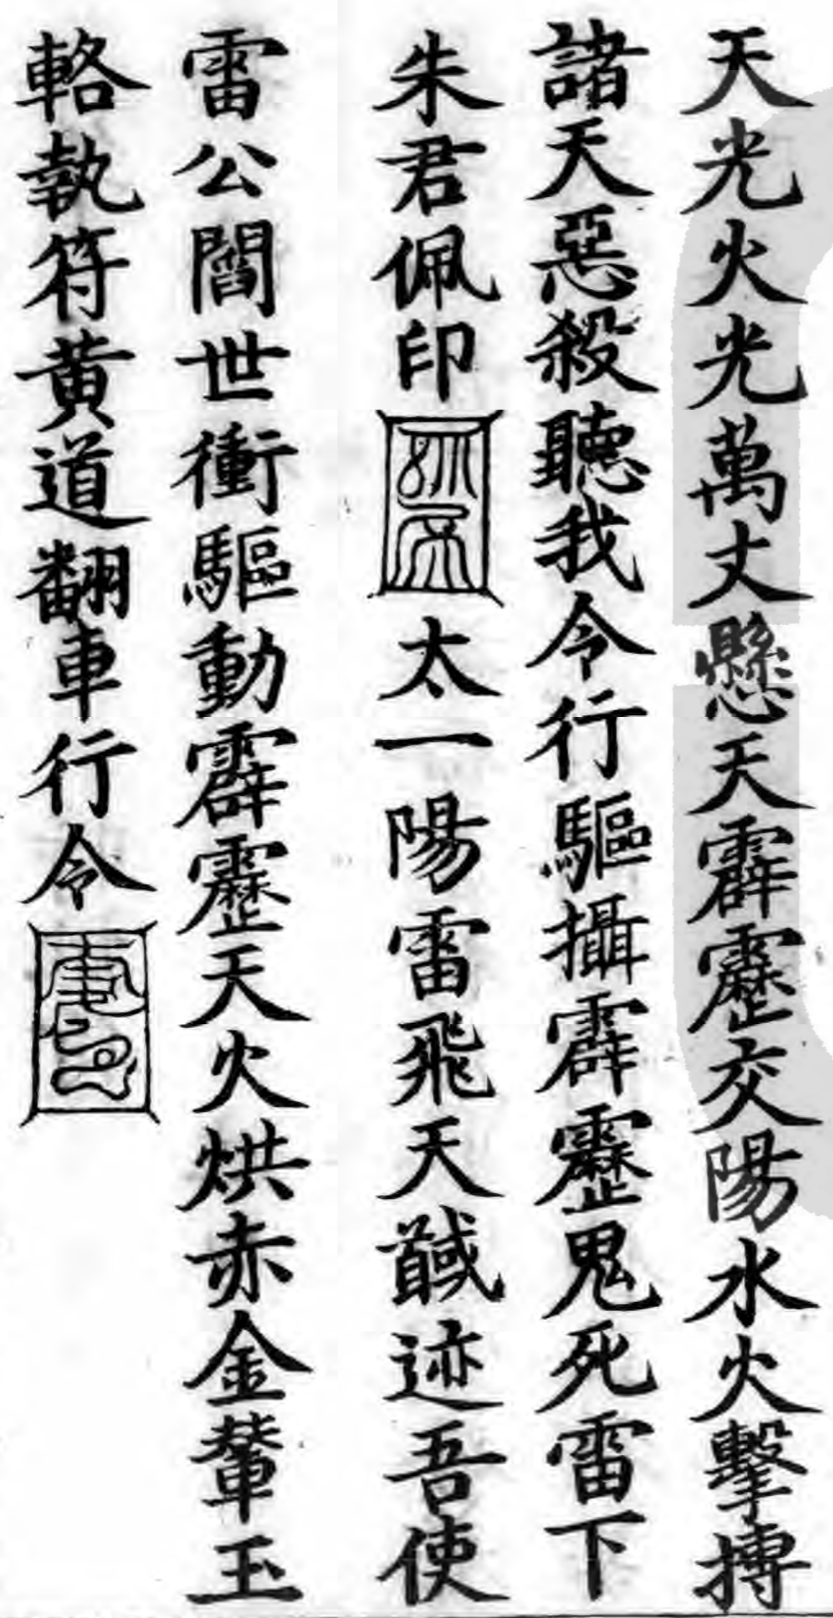 天光火光萬丈懸天霹靂交陽水火擊搏
諸天惡殺聽我令行驅攝霹靂鬼死雷下
朱君佩印太一陽雷飛天馘迹吾使
雷公閻世衝驅動霹靂天火烘赤金輦玉
輅執符黄道翻車行令